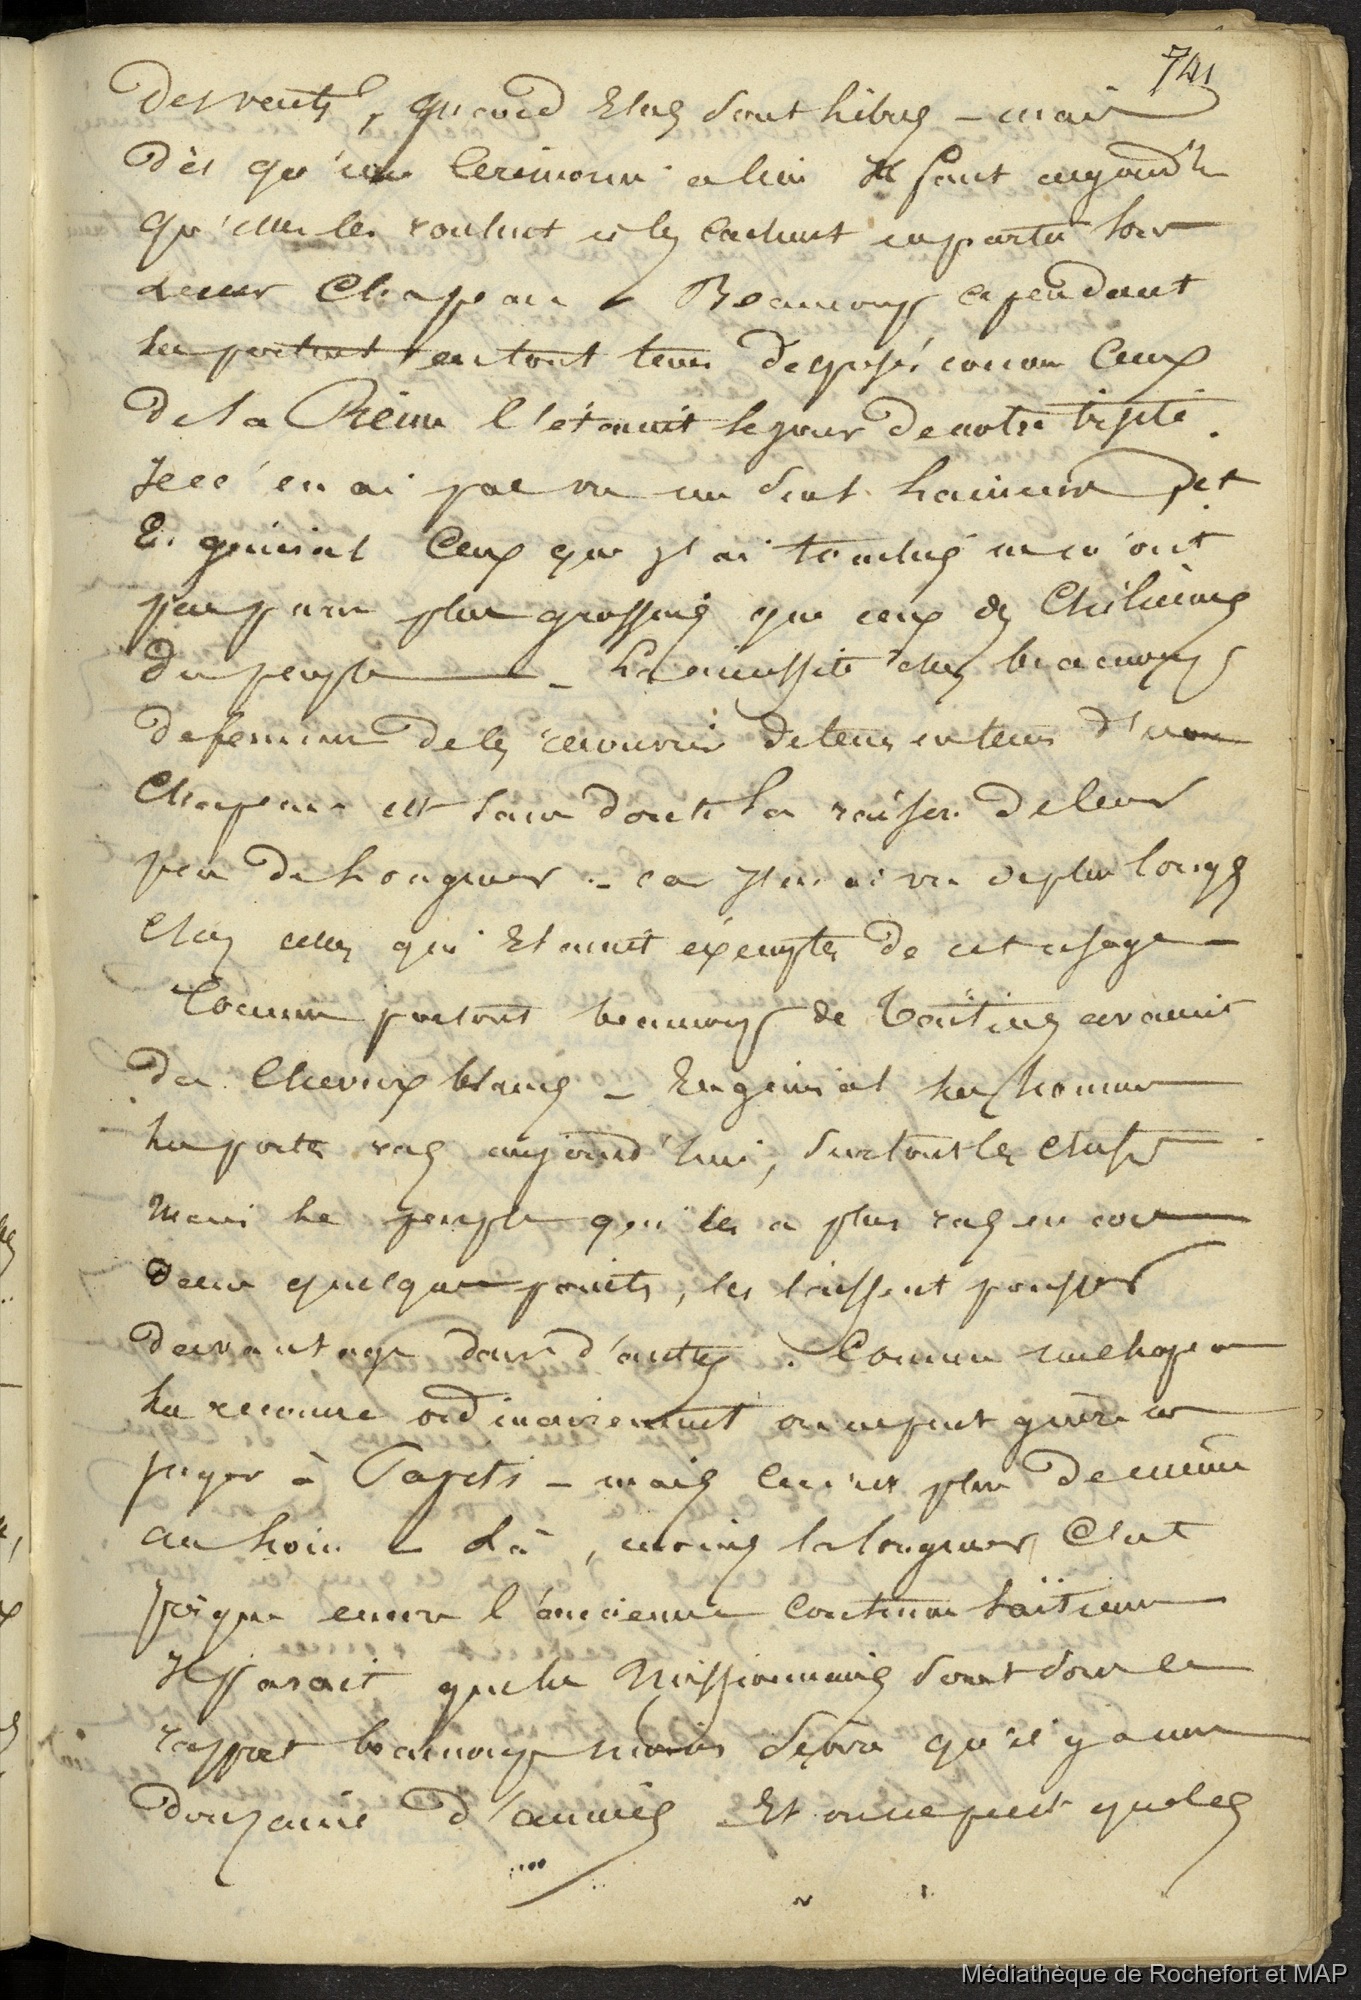 741
des vents, quand Elles sont libres – mais
Dès qu'une Ceremonie a lieu Il faut aujourd'h
qu'elles les roulent et les cachent en partie sous
leur Chapeau – Beaucoup cependant
les portent en tout tems disposés comme Ceux
De la Reine l'étaient le jour de notre visite.
Je n'en ai pas vu un seul et
En général Ceux que j'ai touchés ne m'ont
pas paru plus grossiers que ceux des Chiliennes
Du peuple – La necessité chez beaucoup
de femmes de les recouvrir de tems en tems d'un
Chapeau est sans doute la raison de leur
peu de longueur – car j'en ai vu de plus longs
Chez celles qui Etaient exemptes de cet usage –
Comme partout beaucoup de Taïtiens avaient
des Cheveux blancs – En général les hommes
les portent ras aujourd'hui, surtout les Chefs
Mais le peuple qui les a plus ras encore
dans quelques points, les laissent pousser
davantage dans d'autres. Comme un chapeau
les recouvre ordinairement on ne peut guère en
juger à Papeïti – mais Ce n'est plus de même
au loin – Là, moins la longueur, C'est
presque encore l'ancienne Coutume taïtienne
Il parait que les Missionnaires sont sous ce
rapport beaucoup moins sévères qu'il y a une
Douzaine d'années Et on ne peut que les
Médiathèque de Rochefort et MAP